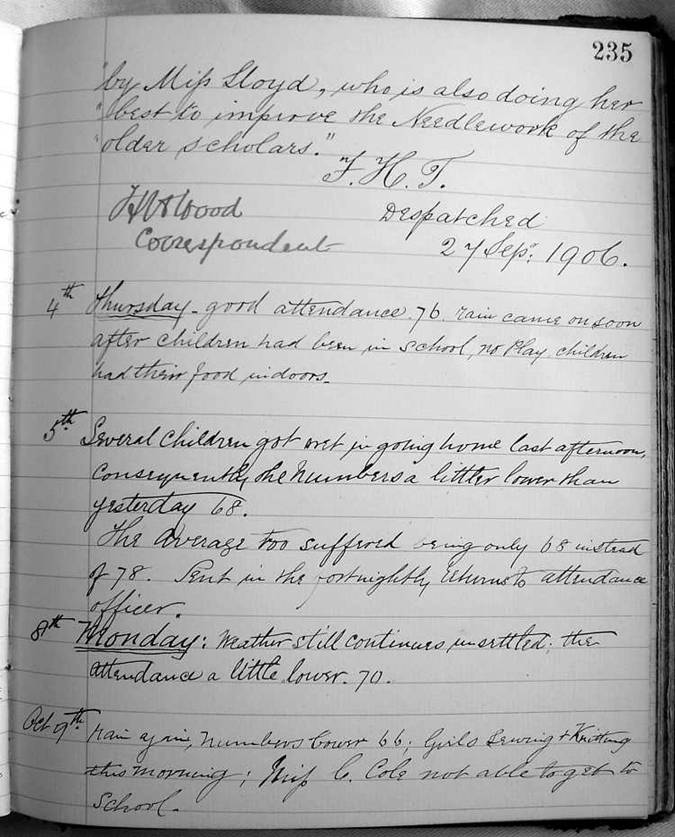 235
"by Miss Lloyd, who is also doing her
"best to improve the Needlework of the
"older scholars."
F. H. T.
Wood Despatched
Correspondent 27 Sep: 1906.
4th Thursday - good attendance. 76. rain came on soon
after children had been in school, no Play, children
had their food indoors.
5th. Several children got wet in going home last afternoon,
consequently the numbers a little lower than
yesterday 68.
The Average too suffered being only 68 instead
of 78. Sent in the fortnightly returns to attendance
officer.
8th Monday: Weather still continues unsettled; the
attendance a little lower. 70.
Oct 9th. rain again, numbers lower 66; Girls Sewing & Knitting
this morning; Miss C. Cole not able to get to
School.